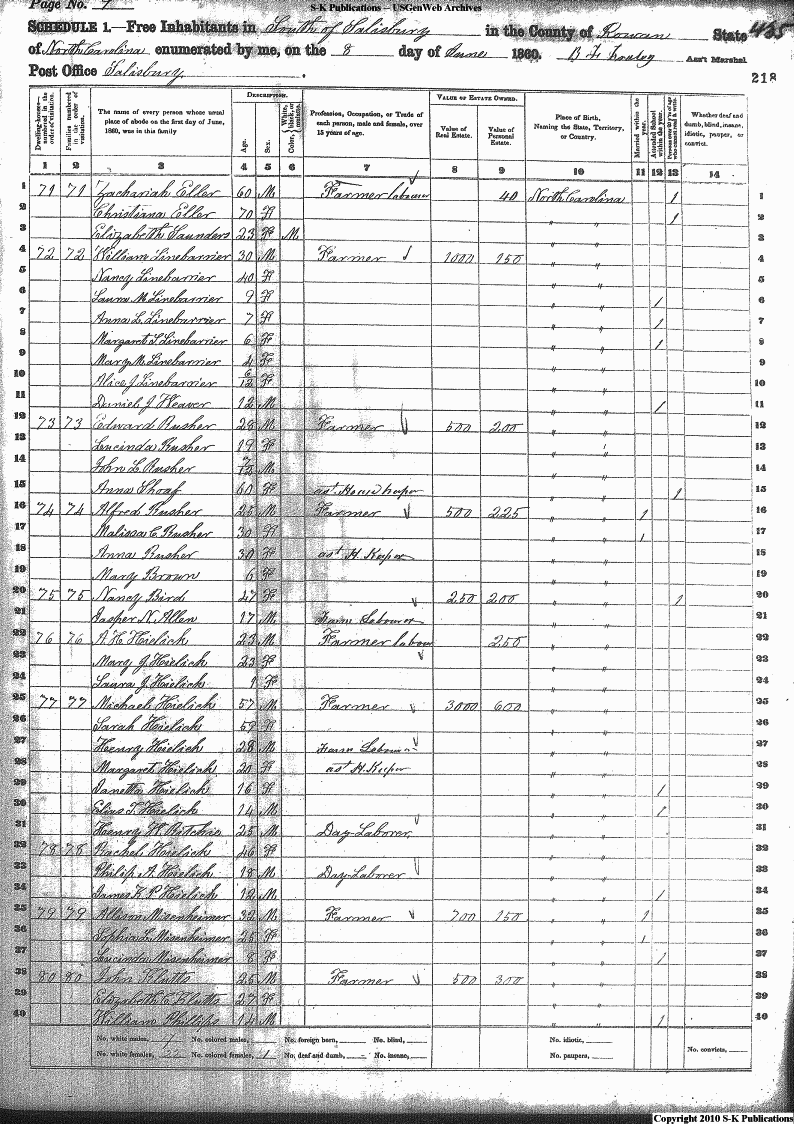 Page No. 9
S-K Publications – USGenWeb Archives
SCHEDULE 1.—Free Inhabitants in South of Salisbury in the County of Rowan State 435
of North Carolina enumerated by me, on the 8 day of June 1860. Ass't Marshal
Post Office Salisbury.
218
Dwelling-houses—numbered in the order of visitation.
Families numbered in the order of visitation.
The name of every person whose usual place of abode on the first day of June, 1860, was in this family
DESCRIPTION.
Age.
Sex.
Color, White, black, or mulatto.
Profession, Occupation, or Trade of each person, male and female, over 15 years of age.
VALUE OF ESTATE OWNED.
Value of Real Estate.
Value of Personal Estate.
Place of Birth, Naming the State, Territory, or Country.
Married within the year.
Attended School within the year.
Persons over 20 y'rs of age who cannot read & write.
Whether deaf and dumb, blind, insane, idiotic, pauper, or convict.
1 2 3 4 5 6 7 8 9 10 11 12 13 14
1 71 71 Zachariah Eller 60 M Farmer labourer 40 North Carolina / 1
2 Christiana Eller 70 F " " / 2
3 Elizabeth Saunders 23 F M " " 3
4 72 72 William Linebarrier 30 M Farmer 1000 150 " " 4
5 Nancy Linebarrier 40 F " " 5
6 Laura M. Linebarrier 9 F " " / 6
7 Anna L. Linebarrier 7 F " " / 7
8 Margaret S. Linebarrier 6 F " " / 8
9 Mary M. Linebarrier 4 F " " 9
10 Alice J. Linebarrier 6/12 F " " 10
11 Daniel J Weaver 12 M " " / 11
12 73 73 Edward Rusher 28 M Farmer 500 200 " " 12
13 Lucinda Rusher 19 F " " 13
14 John L. Rusher 7/12 M " " 14
15 Anna Shoaf 60 F ast House keeper " " / 15
16 74 74 Alfred Rusher 25 M Farmer 500 225 " " / 16
17 Malissa C. Rusher 30 F " " / 17
18 Anna Rusher 30 F ast H. Keeper " " 18
19 Mary Brown 6 F " " 19
20 75 75 Nancy Bird 47 F 250 200 " " / 20
21 Jasper N. Allen 17 M Farm Labourer " " 21
22 76 76 A. H. Hielick 23 M Farmer labour 250 " " 22
23 Mary J. Hielick 23 F " " 23
24 Laura J. Hielick 1 F " " 24
25 77 77 Michael Hielick 57 M Farmer 3000 600 " " 25
26 Sarah Hielick 59 F " " 26
27 Henry Hielick 28 M Farm Labourer " " 27
28 Margaret Hielick 20 F ast H. Keeper " " 28
29 Janetta Hielick 16 F " " / 29
30 Elius T. Hielick 14 M " " / 30
31 Henry W. Ritchie 25 M Day-Laborer " " 31
32 78 78 Rachel Hielick 46 F " " 32
33 Philip A. Hielick 18 M Day-Laborer " " 33
34 James K. P. Hielick 12 M " " / 34
35 79 79 Allison Misenheimer 32 M Farmer 700 150 " " / 35
36 Sophia L. Misenheimer 25 F " " / 36
37 Lucinda Misenheimer 8 F " " / 37
38 80 80 John Klutts 25 M Farmer 500 300 " " 38
39 Elizabeth C. Klutts 27 F " " 39
40 William Phillips 14 M " " / 40
No. white males, No. colored males, No. foreign born, No. blind, No. idiotic,
No. white females, No. colored females, 1 No. deaf and dumb, No. insane, No. paupers, No. convicts,
Copyright 2010 S-K Publications